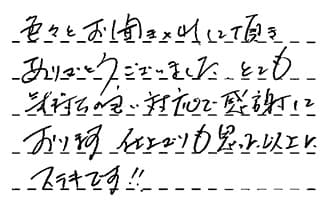 色々とお聞き出して頂き
ありがとうございました とても
気持ちの良い対応で感謝して
おります 仕上がりも思った以上に
ステキです!!